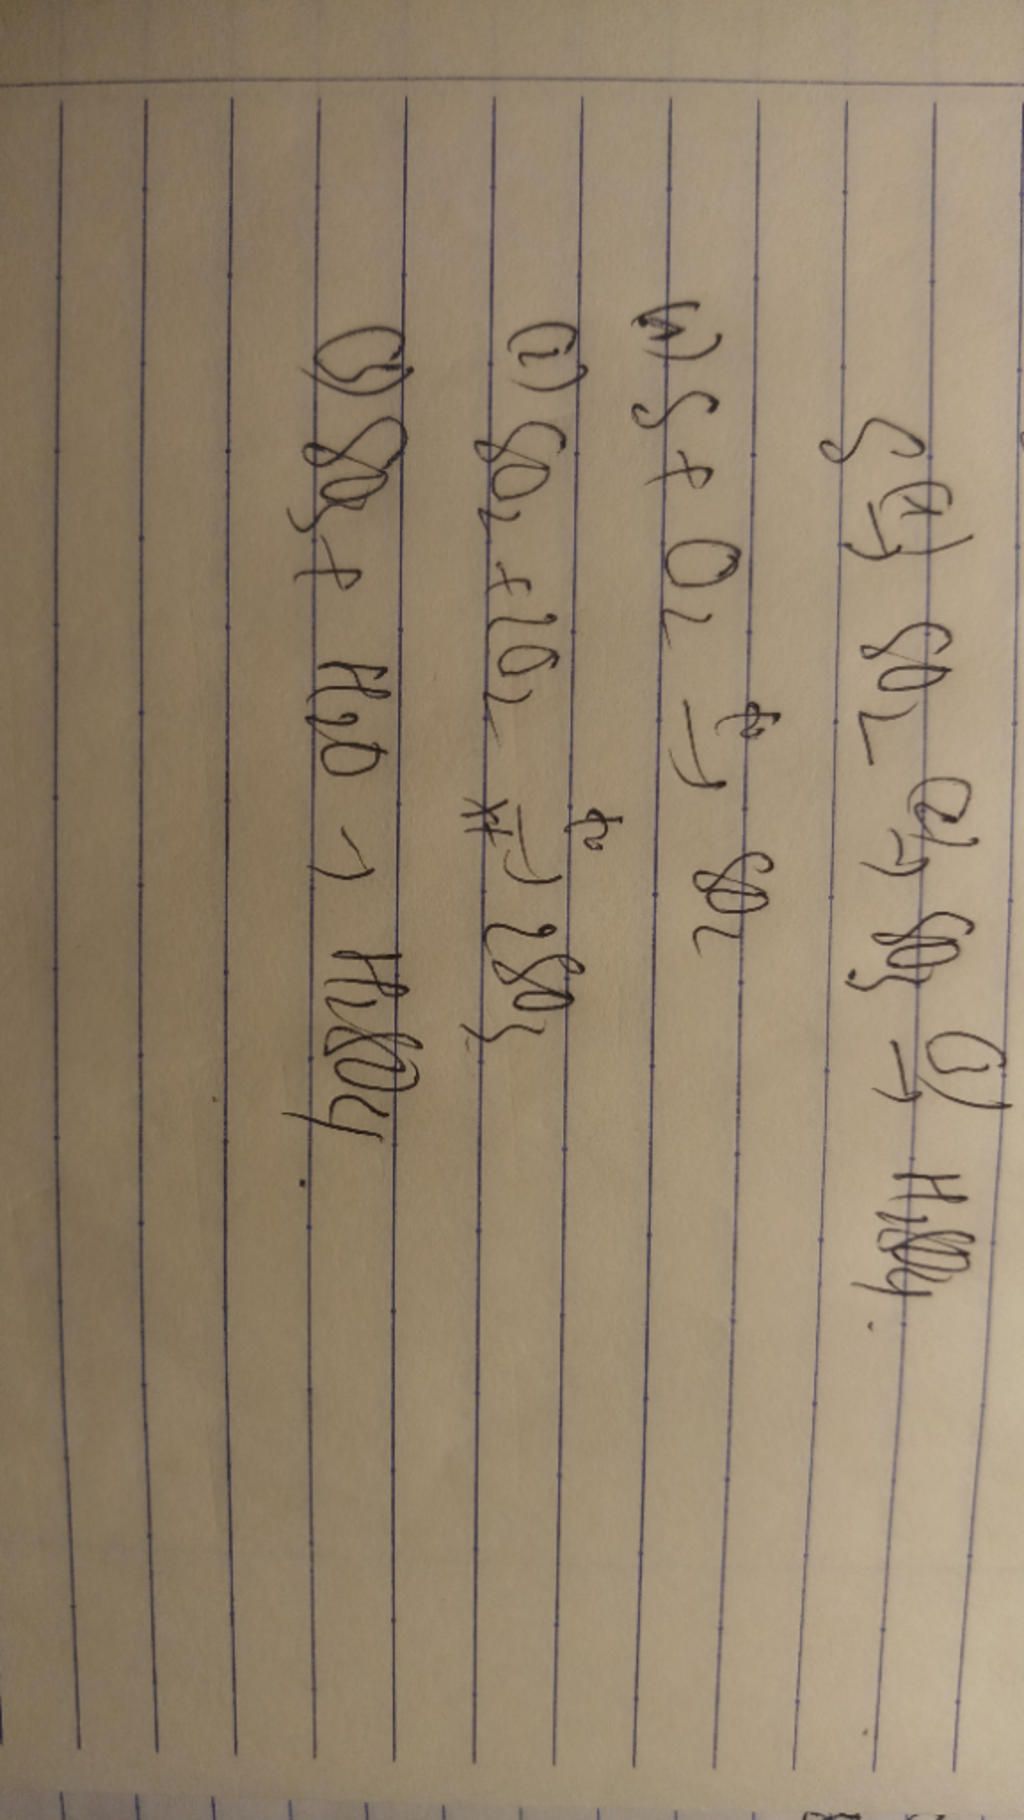 S (1)→ SO2 (2)→ SO3 (3)→ H2SO4.
(1) S + O2 t°→ SO2
(2) SO2 + 2O2 t°→ xt 2SO3
(3) SO3 + H2O → H2SO4